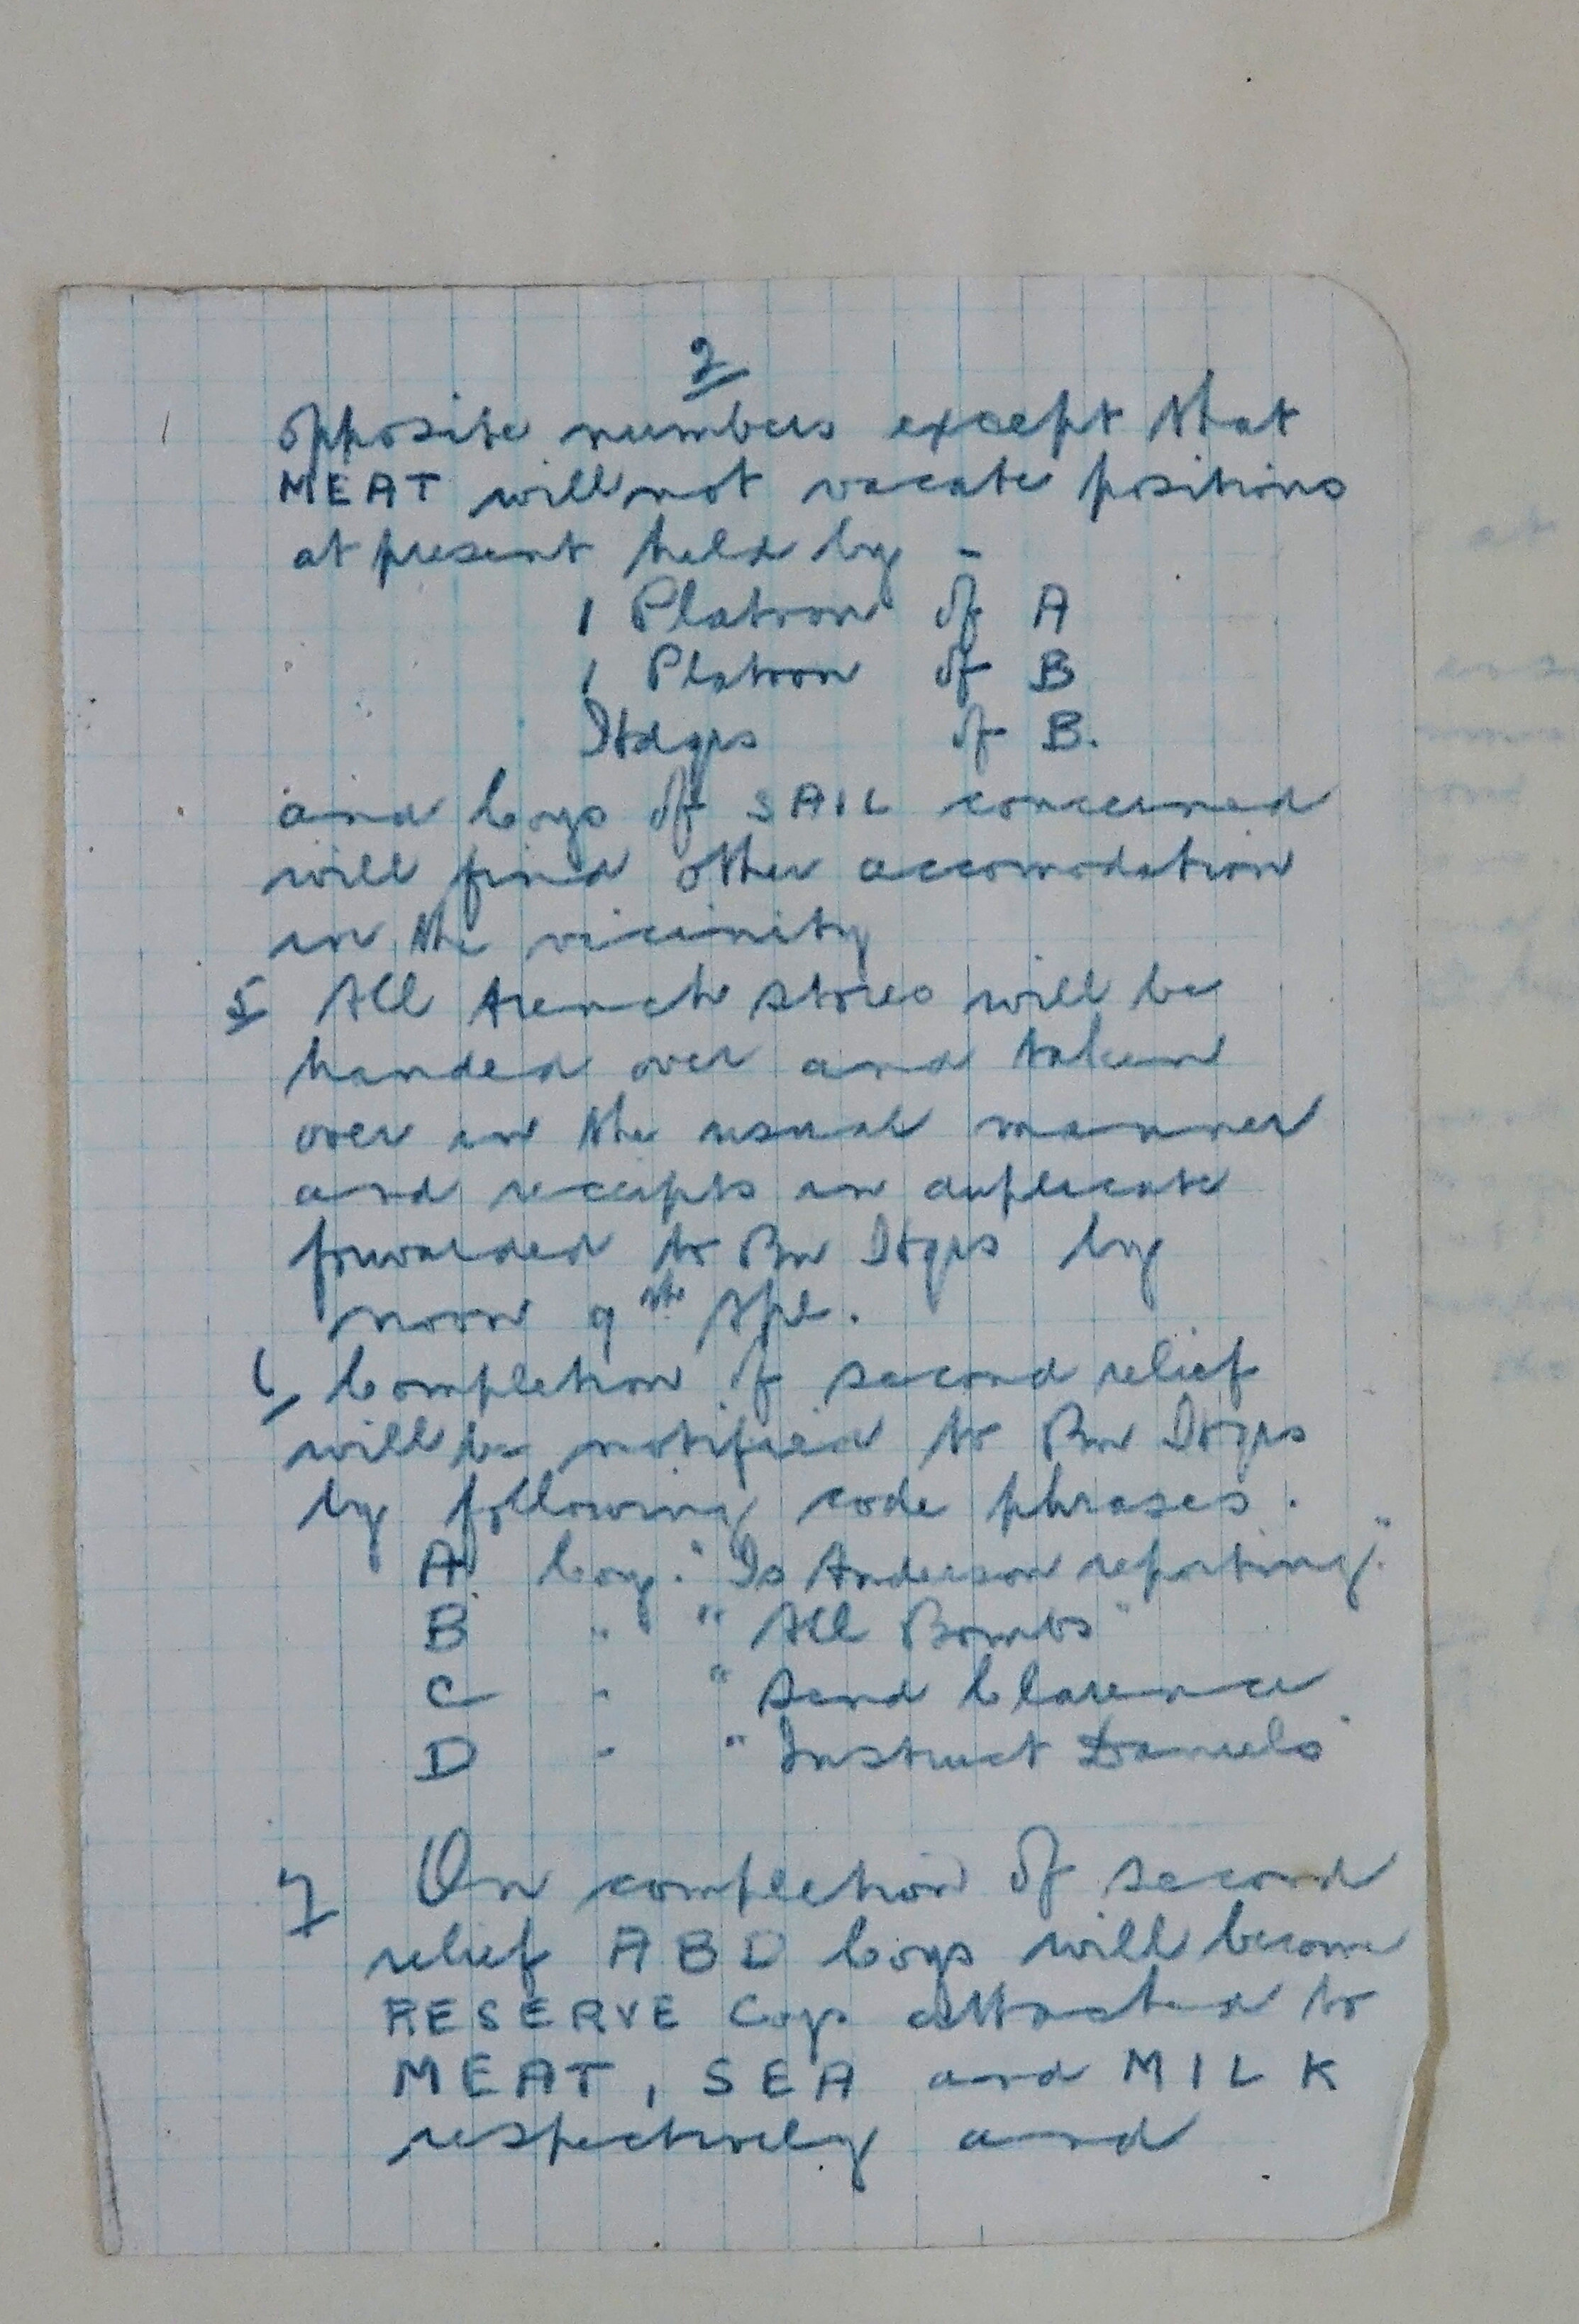 2
opposite numbers except that
MEAT will not vacate positions
at present held by -
1 Platoon of A
1 Platoon of B
Hdqrs of B.
and Coys of SAIL concerned
will find other accomodation
in the vicinity
5 All trench stores will be
handed over and taken
over in the usual manner
and receipts in duplicate
forwarded to Bn Hqrs by
noon 9th Apl.
6 Completion of second relief
will be notified to Bn Hqrs
by following code phrases.
A Coy. "Is Anderson reporting."
B " " All Bombs"
C " " Send Clarence
D " " Instruct Daniels"
7 On completion of second
relief A B D Coys will become
RESERVE Coys attached to
MEAT, SEA and MILK
respectively and